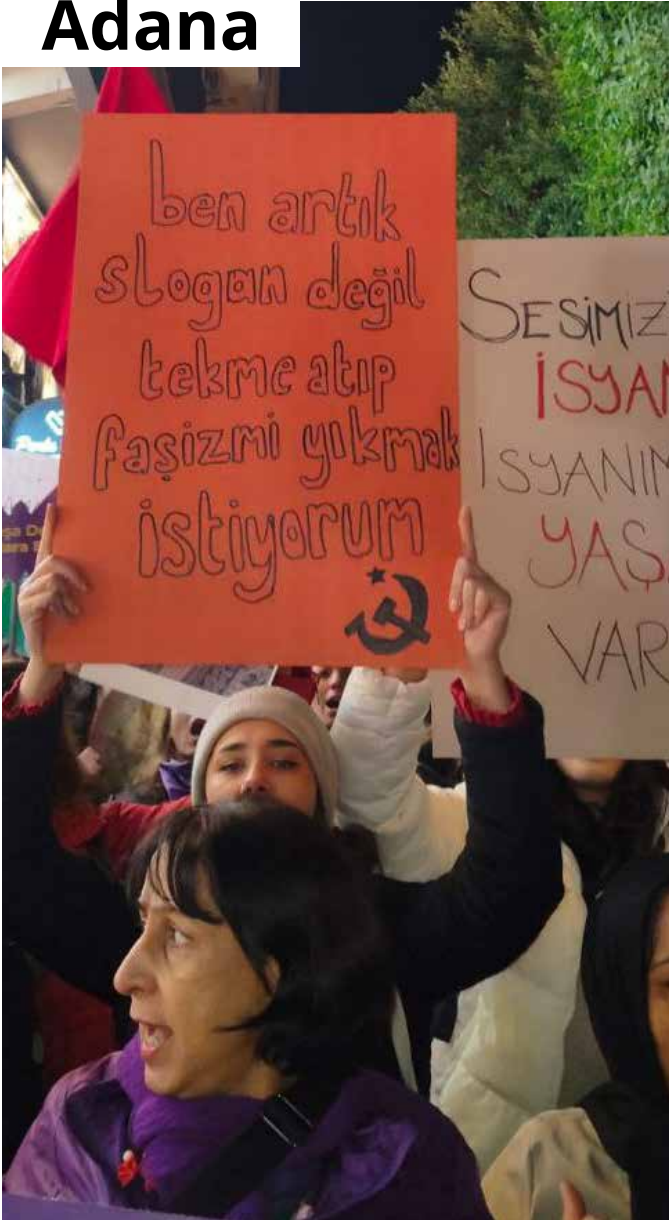 Adana
ben artık
slogan değil
tekme atıp
faşizmi yıkmak
istiyorum
SESİMİZ
İSYAN
ISYANIM
YAŞ
VAR